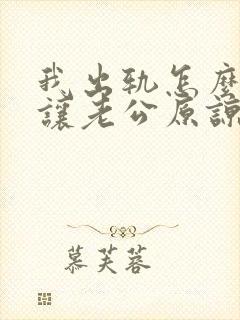 我出轨怎麼
讓老公原諒
慕芙蓉